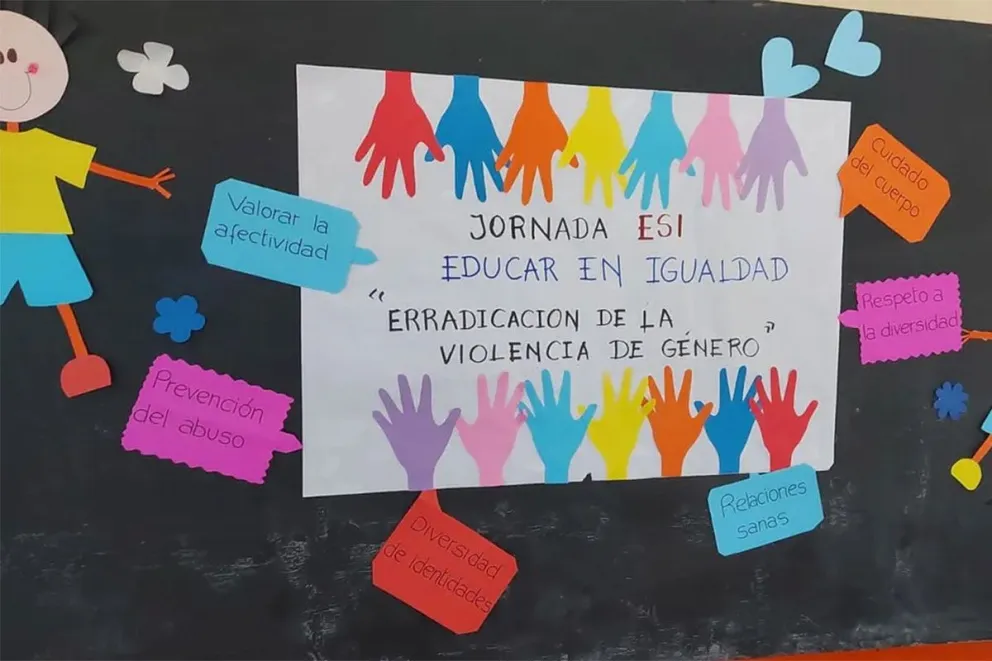 JORNADA ESI
EDUCAR EN IGUALDAD
"ERRADICACION DE LA
VIOLENCIA DE GÉNERO"
Valorar la
afectividad
Prevención
del abuso
Diversidad
de identidades
Relaciones
sanas
Respeto a
la diversidad
Cuidado
del cuerpo